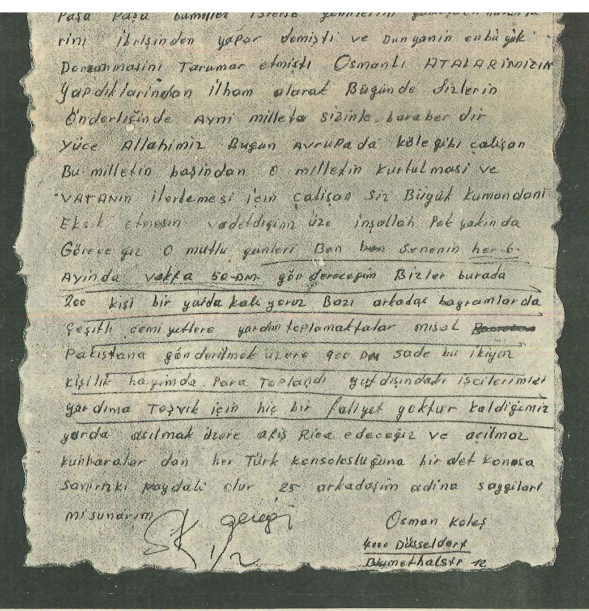 Paşa Paşa bumillet isterse gemilerini
rini ibrişinden yapar demişti ve Dunyanin enbüyük
Donanmasini Tarumar etmişti Osmanlı ATALARIMIZIN
Yapdıklarindan ilham alarak Bugünde sizlerin
Önderliğinde Ayni milleta sizinle beraber dir
Yüce Allahimiz Bugün AvruPada köle gibi çalışan
Bu milletin başindan o milletin Kurtulmasi ve
VATANIN ilerlemesi için çalişan siz Büyük kumandani
Eksik etmesin vadetdiğiniz üze inşallah Pek yakında
Göreceğiz O mutlu günleri Ben senenin her 6.
Ayinda vakfa 50-DM. göndereceğim Bizler burada
200 kişi bir yurda kalıyoruz Bazı arkadaş bayramlarda
Çeşitli cemiyetlere yardım toplamaktalar misal
Pakistana gönderilmek üzere 900 DM sade bu ikiyüz
kişilik hayımda Para Toplandı yurt dışındaki işcilerimizi
yardıma Teşvik için hiç bir faliyet yoktur kaldiğimiz
yurda asılmak üzere afiş Rica edeceğiz ve açilmaz
kumbaralar dan her Türk konsolosluğuna bir adet konsa
Sanırımki faydali olur 25 arkadaşim adina saygilari
mi sunarım
gereği
SK 1/2
Osman Koleş
4000 Düsseldorf
Blumethalstr 12